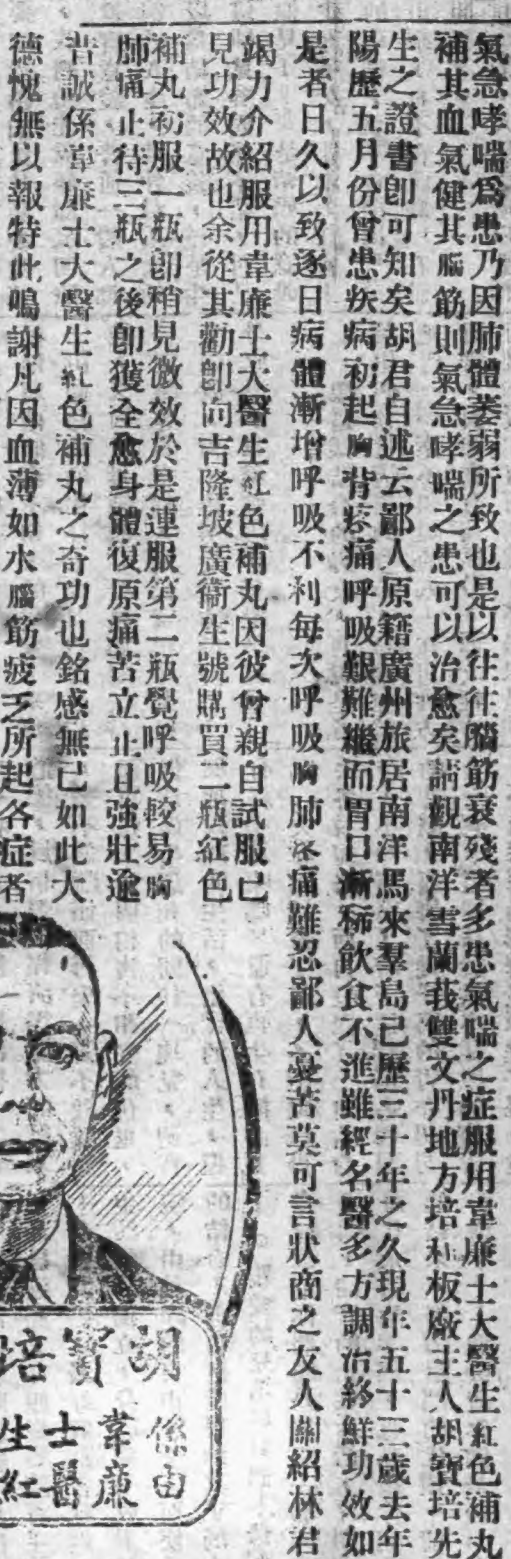 氣急哮喘爲患乃因肺體萎弱所致也是以往往腦筋衰殘者多患氣喘之症服用韋廉士大醫生紅色補丸
補其血氣健其腦筋則氣急哮喘之患可以治愈矣請觀南洋雪蘭莪雙文丹地方培利板廠主人胡寶培先
生之證書卽可知矣胡君自述云鄙人原籍廣州旅居南洋馬來羣島已歷三十年之久現年五十三歲去年
陽歷五月份曾患疾病初起胸背疼痛呼吸艱難繼而胃口漸稀飲食不進雖經名醫多方調治終鮮功效如
是者日久以致逐日病體漸增呼吸不利每次呼吸胸肺疼痛難忍鄙人憂苦莫可言狀商之友人關紹林君
竭力介紹服用韋廉士大醫生紅色補丸因彼曾親自試服已
見功效故也余從其勸卽向吉隆坡廣衞生號購買二瓶紅色
補丸初服一瓶卽稍見微效於是連服第二瓶覺呼吸較易胸
肺痛止待三瓶之後卽獲全愈身體復原痛苦立止且強壯逾
昔誠係韋廉士大醫生紅色補丸之奇功也銘感無已如此大
德愧無以報特此鳴謝凡因血薄如水腦筋疲乏所起各症者
胡寶培
係由
韋廉
士醫
生紅